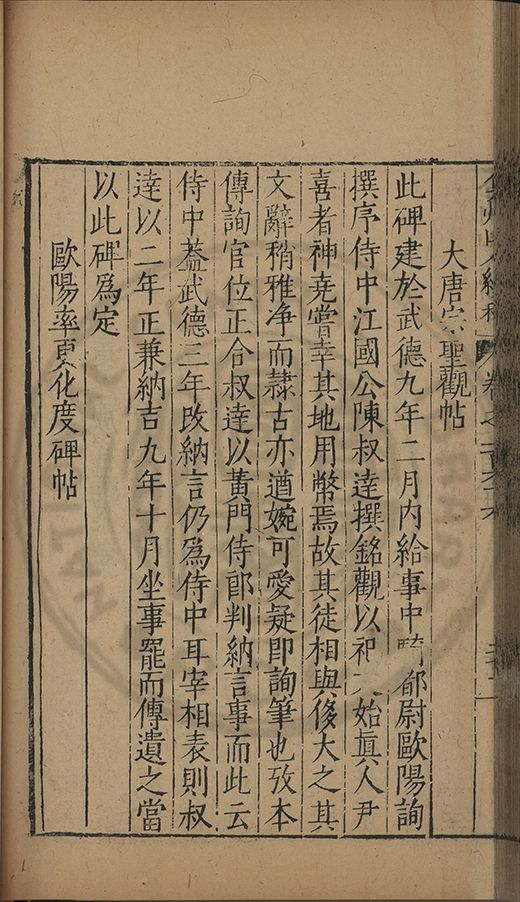 大唐宗聖觀帖
此碑建於武德九年二月內給事中都尉歐陽詢
撰序侍中江國公陳叔達撰銘觀以祀始眞人尹
喜者神堯嘗幸其地用幣焉故其徒相與侈大之其
文辭稍雅净而隷古亦遒婉可愛疑即詢筆也攷本
傳詢官位正合叔達以黃門侍郎判納言事而此云
侍中葢武德三年改納言仍爲侍中耳宰相表則叔
達以二年正兼納吉九年十月坐事罷而傳遺之當
以此碑爲定
歐陽率更化度碑帖